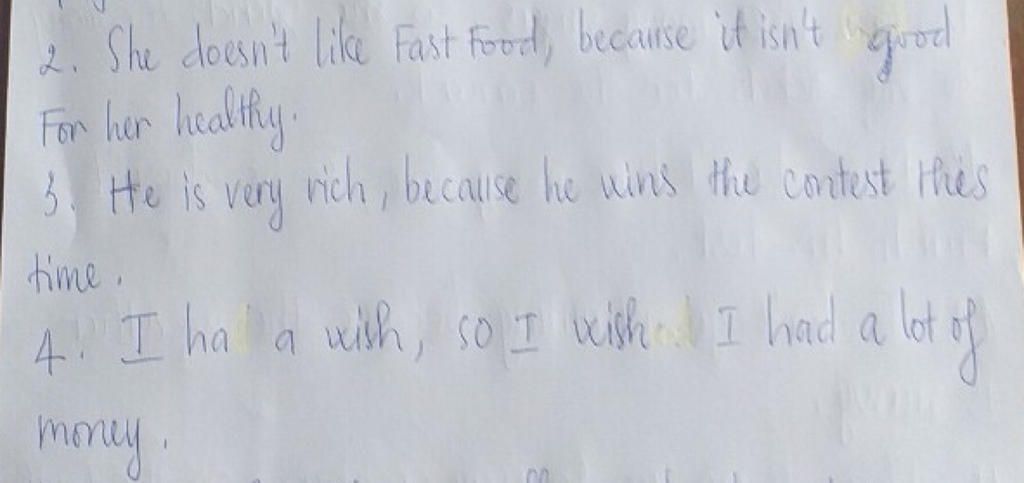 2. She doesn't like Fast Food, because it isn't good
For her healthy.
3. He is very rich, because he wins the contest this
time.
4. I ha a wish, so I wish I had a lot of
money.